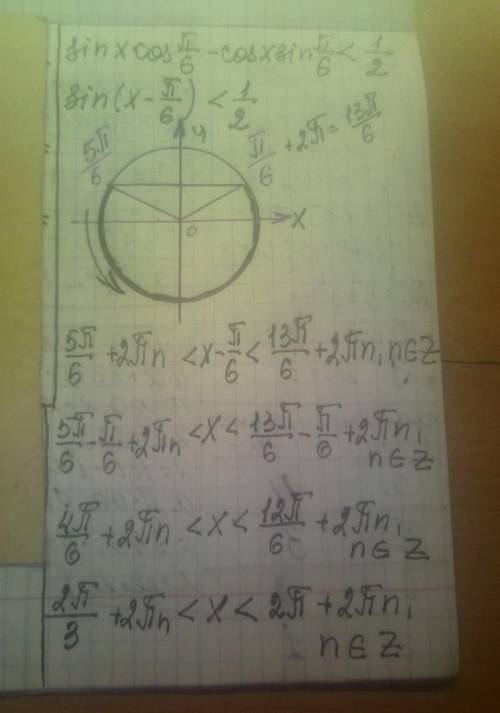 sin x cos π/6 - cos x sin π/6 < 1/2
sin(x - π/6) < 1/2
y
5π/6
π/6 + 2π = 13π/6
x
0
5π/6 + 2πn < x - π/6 < 13π/6 + 2πn, n∈Z
5π/6 - π/6 + 2πn < x < 13π/6 - π/6 + 2πn,
n∈Z
4π/6 + 2πn < x < 12π/6 + 2πn,
n∈Z
2π/3 + 2πn < x < 2π + 2πn,
n∈Z